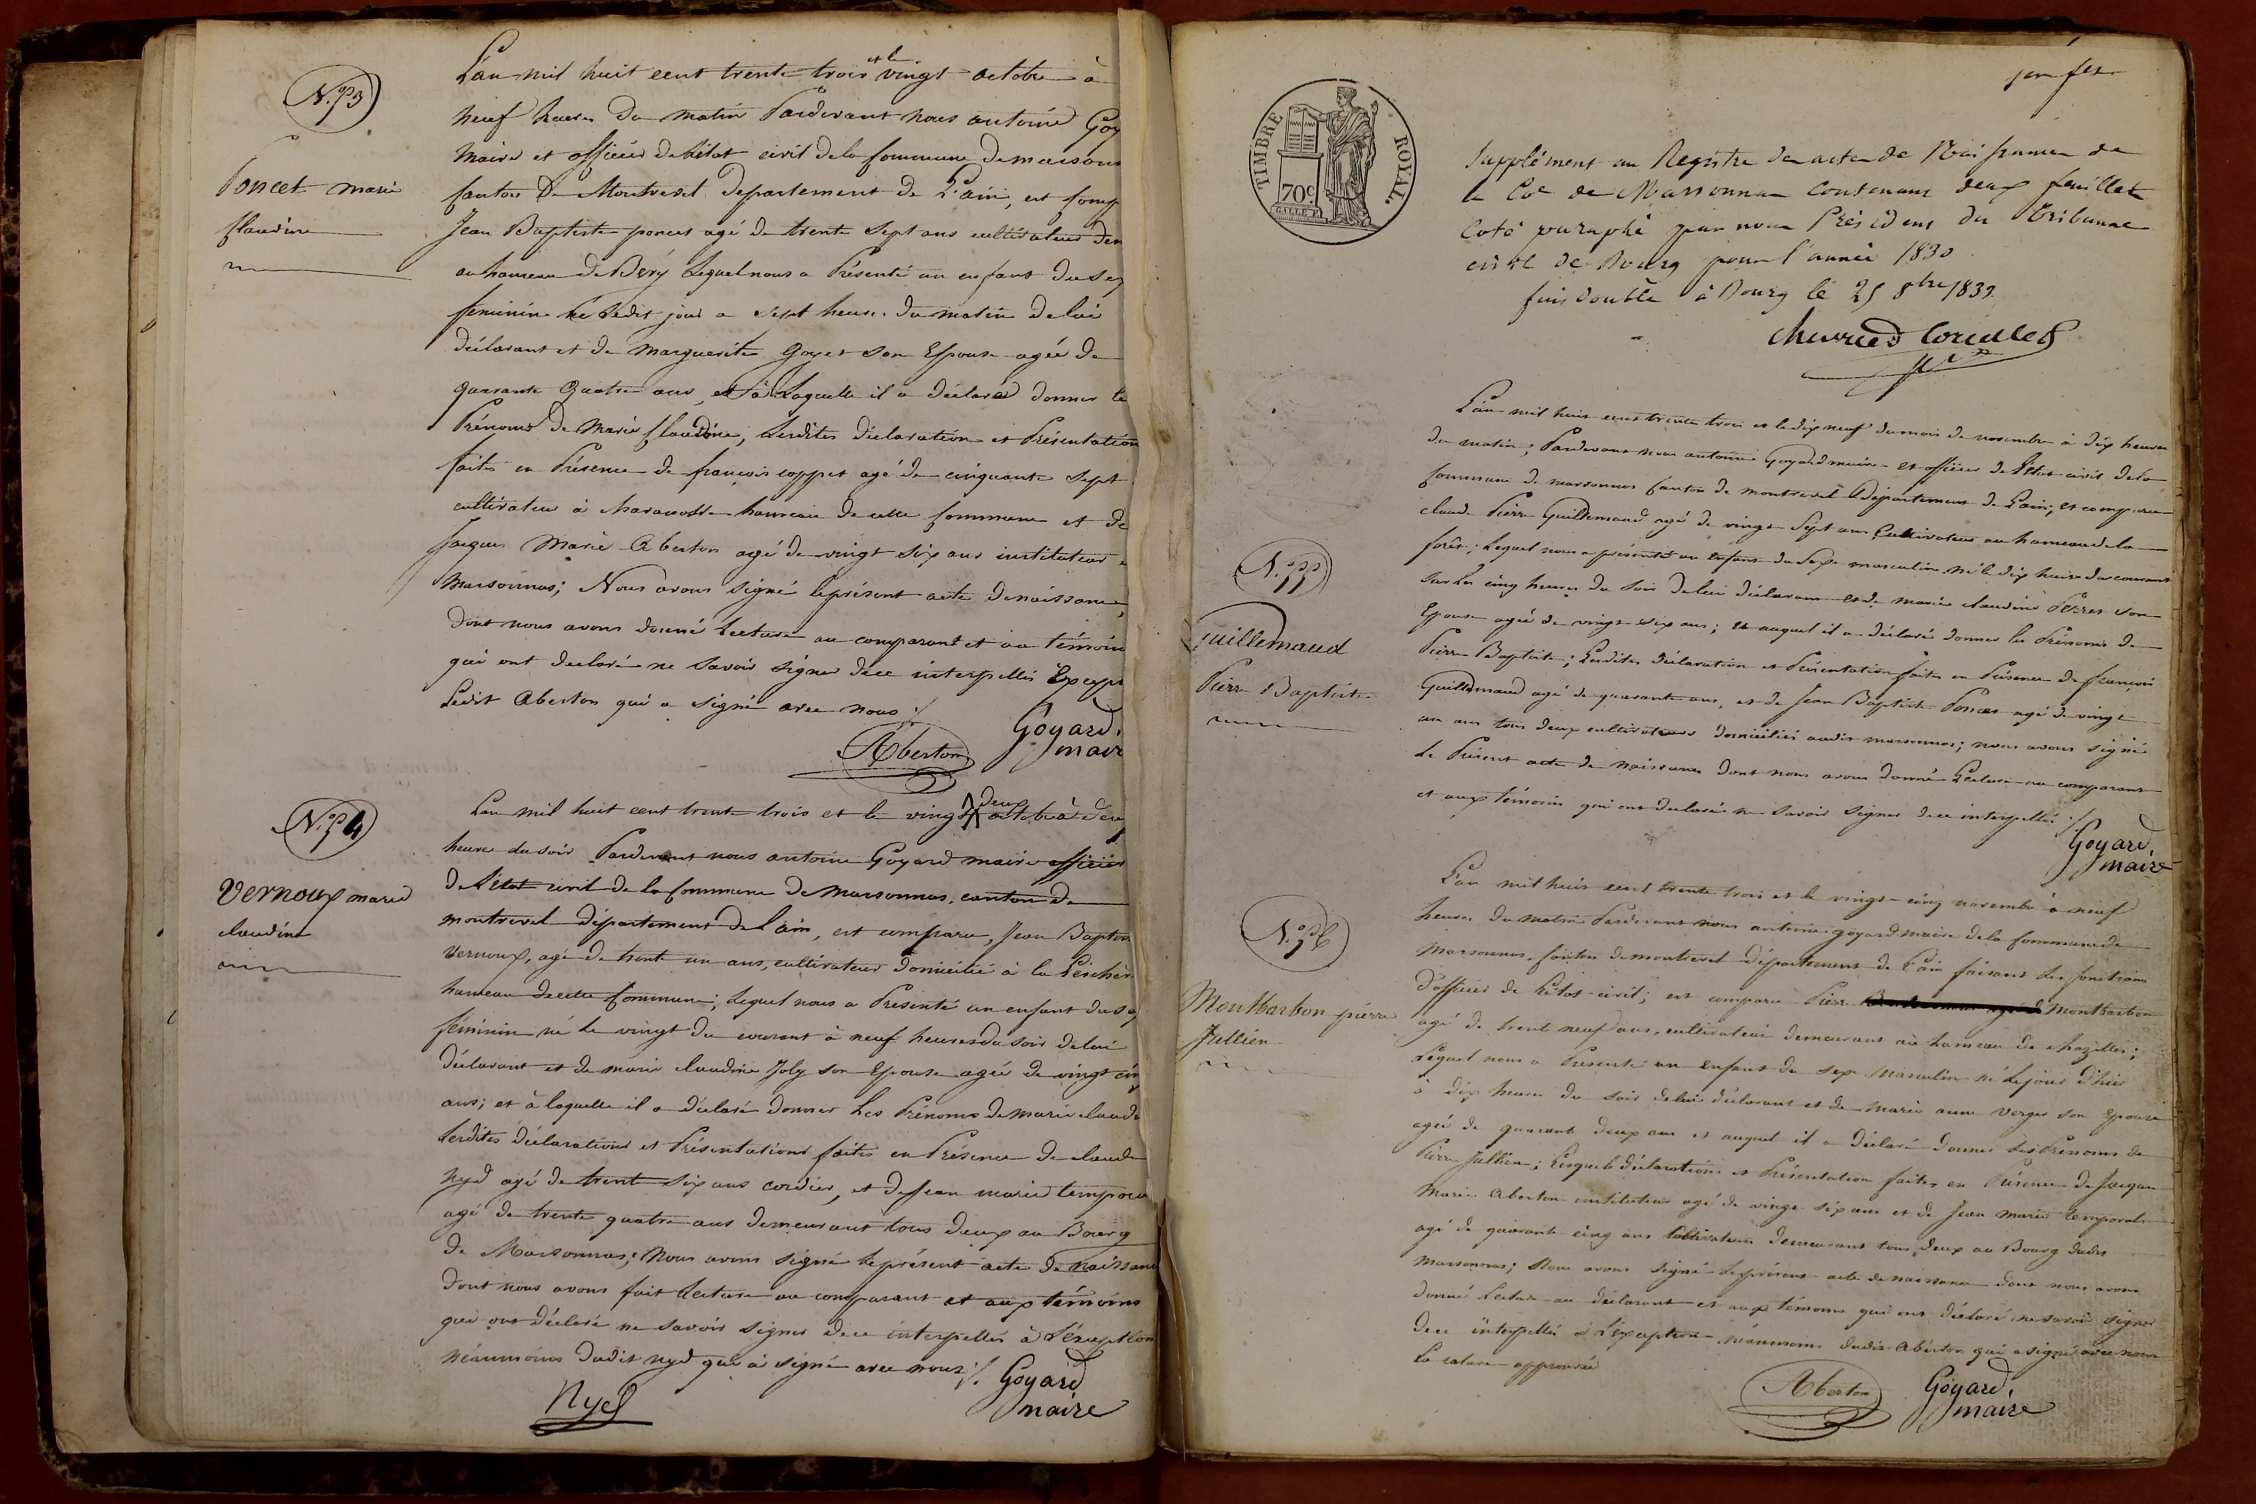 N.º 73
Poncet marie
Claudine
L'an mil huit cent trente trois et le vingt octobre à
neuf heures du matin Pardevant nous antoine Goy
Maire et officier de l'état civil de la Commune de marsonn
Canton de Montrevel Département de L'ain, est comp
Jean Baptiste poncet agé de trente sept ans cultivateur dem
au hameau de Béry Lequel nous a Présenté un enfant du sex
feminin né cedit jour a sept heures du matin de lui
déclarant et de marguerite Goyet son Epouse agée de
quarante Quatre ans, et à Laquelle il a déclaré donner le
Prénoms de Marie Claudine, Lesdites déclaration et Présentation
faites en Présence de françois coppet agé de cinquante sept
cultivateur à hameau de cette Commune et de
Jacques Marie Aberton agé de vingt six ans instituteur a
Marsonnas; Nous avons signé le présent acte de naissance,
dont nous avons donné lecture au comparant et au témoin
qui ont declaré ne savoir signer de ce interpellés Except
Ledit Aberton qui a signé avec nous ./.
Aberton
Goyard,
mair
N.º 74
Vernoux marie
claudine
L'an mil huit cent trente trois et le vingt deux octobre à deux
heures du soir Pardevant nous antoine Goyard maire officier
de l'état civil de la Commune de Marsonnas, canton de
montrevel département de l'ain, est comparu, Jean Baptiste
Vernoux, agé de trente un ans, cultivateur domicilié à la
hameau de cette Commune; Lequel nous a Presenté un enfant du sex
féminin né le vingt du courant à neuf heures du soir de lui
déclarant et de marie claudine Joly son Epouse agée de vingt cin
ans; et à laquelle il a déclaré donner Les Prénoms de marie claud
Lesdites déclarations et Présentations faites en Présence de claude
Nyd agé de trente six ans cordier, et de Jean marie tempora
agé de trente quatre ans demeurant tous deux au Bourg
de Marsonnas; Nous avons signé le présent acte de naissan
dont nous avons fait lecture au comparant et aux témoins
qui ont déclaré ne savoir signer de ce interpellés à l'exception
néanmoins dudit nyd qui a signé avec nous ./.
Nyd
Goyard
maire
TIMBRE ROYAL.
70 c.
Supplément au Registre des actes de Naissances de
la Cne de Marsonnas Contenant deux feuillets
Coté paraphé par nous Président du Tribunal
civil de Bourg pour l'année 1833
fait double à Bourg le 25 8bre 1833
N.º 75
Guillemaud
Pierre Baptiste
L'an mil huit cent trente trois et le dix neuf du mois de novembre à dix heures
du matin; Pardevant nous antoine Goyard maire et officier de l'état civil de la
Commune de marsonnas Canton de montrevel département de L'ain; est comparu
claude Pierre Guillemaud agé de vingt Sept ans Cultivateur au hameau de la
forêt; Lequel nous a présenté un enfant du Sexe masculin né le dix huit du courant
sur Les cinq heures du soir de lui déclarant et de marie claudine son
Epouse agée de vingt six ans; et auquel il a déclaré donner les Prénoms de
Pierre Baptiste; Lesdites déclaration et Présentation faites en Présence de françois
Guillemaud agé de quarante ans, et de Jean Baptiste Poncet agé de vingt
un ans tous deux cultivateurs domiciliés audit marsonnas; nous avons signé
Le Présent acte de naissance dont nous avons donné Lecture au comparant
et aux témoins qui ont declaré ne savoir signer de ce interpellés ./.
Goyard,
maire
N.º 76
Montbarbon pierre
Jullien
L'an mil huit cent trente trois et le vingt cinq novembre à neuf
heures du matin Pardevant nous antoine goyard maire de la Commune de
Marsonnas, Canton de montrevel département de L'ain faisant les fonctions
d'officier de l'état civil; est comparu Pierre Montbarbon
agé de trente neuf ans, cultivateur demeurant au hameau de chazelles;
Lequel nous a Presenté un enfant du sexe Masculin né le jour d'hier
à dix heures du soir de lui déclarant et de marie anne Verger son Epouse
agée de quarante deux ans et auquel il a déclaré donner les Prénoms de
Pierre Jullien; Lesquels déclaration et Présentation faites en Présence de Jacques
Marie Aberton instituteur agé de vingt six ans et de Jean marie temporal
agé de quarante cinq ans Cultivateur demeurant tous deux au Bourg dudit
Marsonnas; Nous avons signé le présent acte de naissance dont nous avons
donné Lecture au déclarant et aux témoins qui ont déclaré ne savoir signer
de ce interpellés à L'exception néanmoins dudit Aberton qui a signé avec nous
La rature approuvée
Aberton
Goyard,
maire